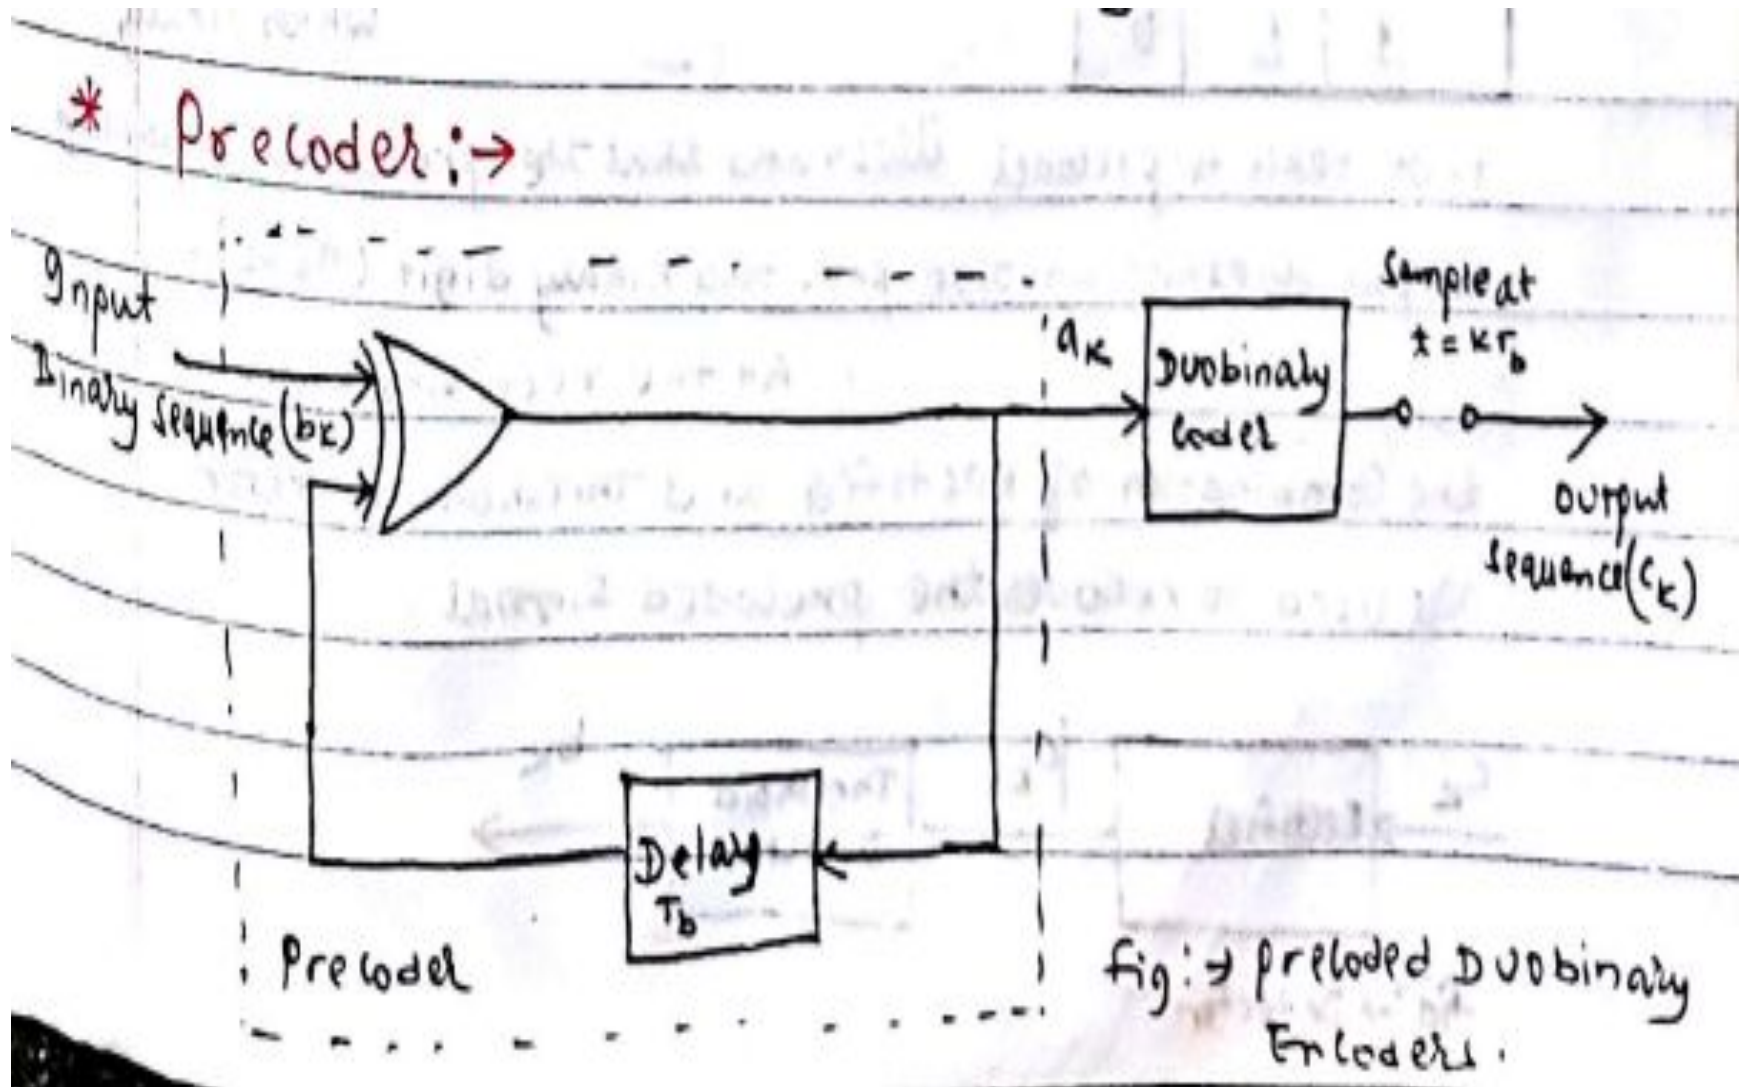 * Precoder:→
Input
Binary sequence(bk)
ak
Duobinary
Coder
Sample at
t = kTb
Output
sequence(Ck)
Delay
Tb
Precoder
fig:→ Precoded Duobinary
Encoders.